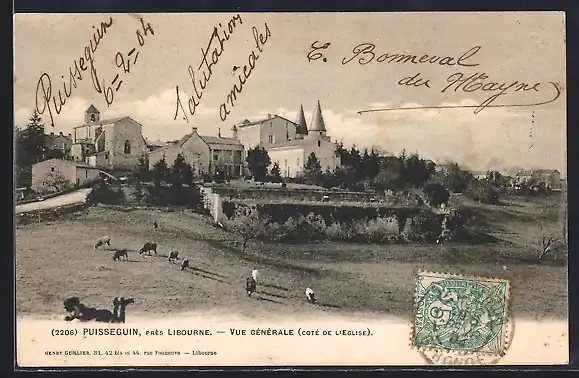 Puisseguin
6-2-04
Salutations
amicales
E. Bonneval
du Mayne
(2206) PUISSEGUIN, PRÈS LIBOURNE. - VUE GÉNÉRALE (COTÉ DE L'EGLISE).
HENRY GUILLIER, 31, 42 bis et 44, rue Fonneuve - Libourne